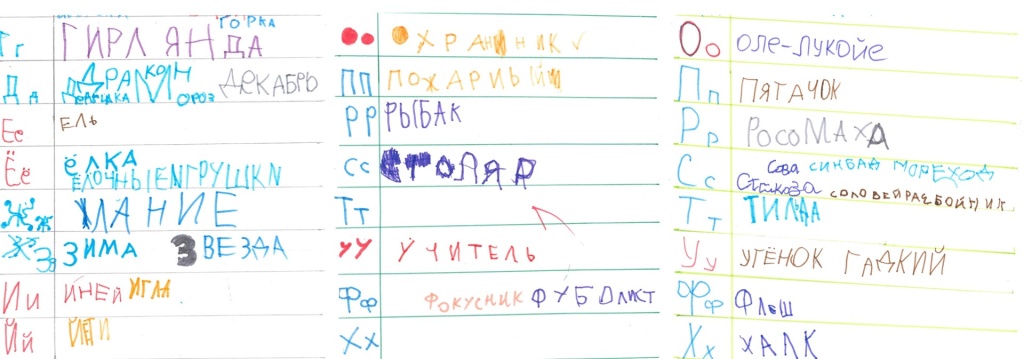 ГОРКА
Гг ГИРЛЯНДА
Дд ДРАКОН ДЕКАБРЬ
МОРОЗ
Ее ЕЛЬ
Ёё ЁЛКА
ЁЛОЧНЫЕ ИГРУШКИ
Жж ЛАНИЕ
Зз ЗИМА ЗВЕЗДА
Ии ИНЕЙ ИГЛА
Йй ЙЕТИ
Оо ОХРАННИК
Пп ПОЖАРНЫЙ
Рр РЫБАК
Сс СТОЛЯР
Тт
Уу УЧИТЕЛЬ
Фф ФОКУСНИК ФУБОЛИСТ
Хх
Оо ОЛЕ-ЛУКОЙЕ
Пп ПЯТАЧОК
Рр РОСОМАХА
Сс Сова СИНБАД МОРЕХОД
СОЛОВЕЙ РАЗБОЙНИК
Тт ТИЛДА
Уу УТЁНОК ГАДКИЙ
Фф ФЛЕШ
Хх ХАЛК